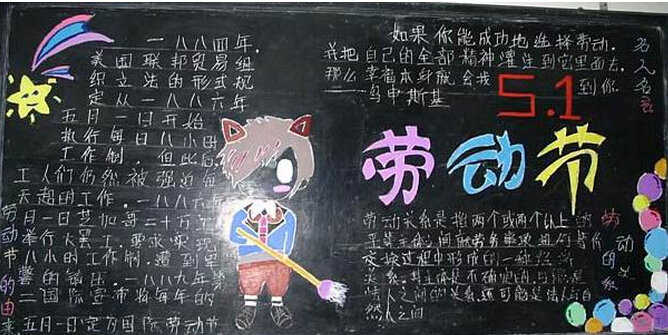 一八八四年，
美国联邦贸易组
织立法的形式规
定从一八八六年
五月一日开始
执行每日八小时
工作制，但此后
工人们仍然被强迫每
天超时工作。一八八六年
五月一日芝加哥二十万
举行大罢工，要求实现
八小时工作制，遭到
的镇压。一八八九年第
二国际宣布将每年的
五月一日定为国际劳动节
劳动节的由来
如果你能成功地选择劳动，
并把自己的全部精神灌注到它里面去，
那么幸福本身就会找到你
——乌申斯基
名人名言
5.1
劳动节
劳动关系是指两个或两个以上的
定过程中形成的一种
关系，其主体是不确定的
法人之间的关系还可能是法人与自
然人之间
劳动的关系